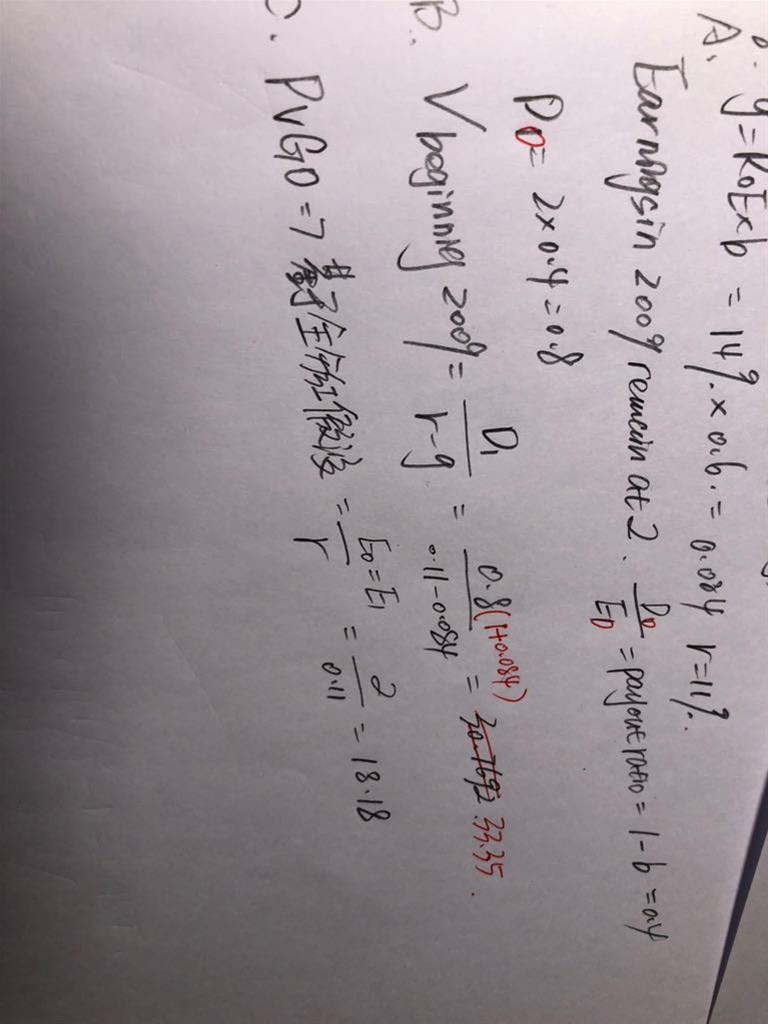 A. g=RoExb = 14%. x 0.6. = 0.084 r=11%.
Earnings in 2009 remain at 2. D0/E0 = payout ratio = 1-b = 0.4
D0= 2x0.4=0.8
B. V beginnig 2009 = D1/r-g = 0.8(1+0.084)/0.11-0.084 = 33.35.
C. PVGO = ? 全分红假设 = E0=E1/r = 2/0.11 = 18.18